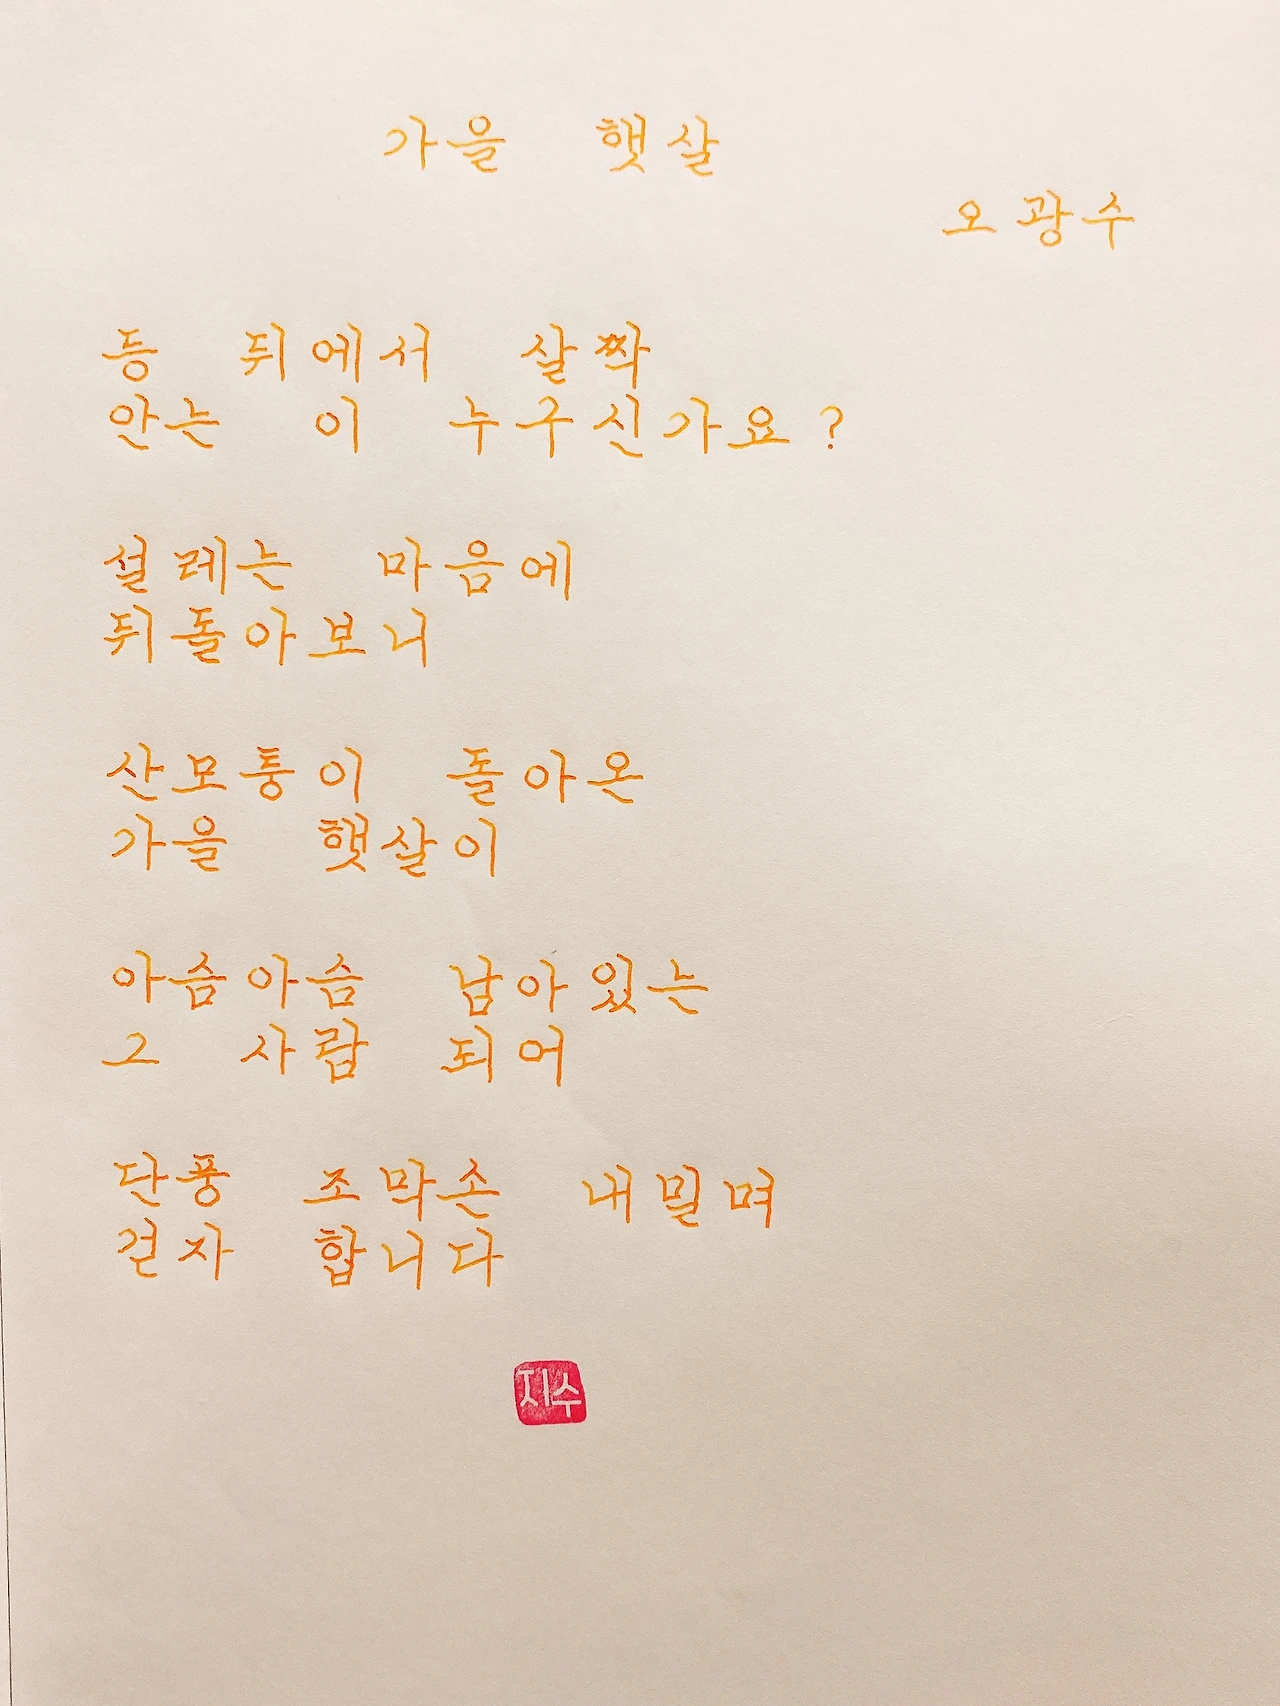 가을 햇살
오광수
등 뒤에서 살짝
안는 이 누구신가요?
설레는 마음에
뒤돌아보니
산모퉁이 돌아온
가을 햇살이
아슴아슴 남아있는
그 사람 되어
단풍 조막손 내밀며
걷자 합니다
지수